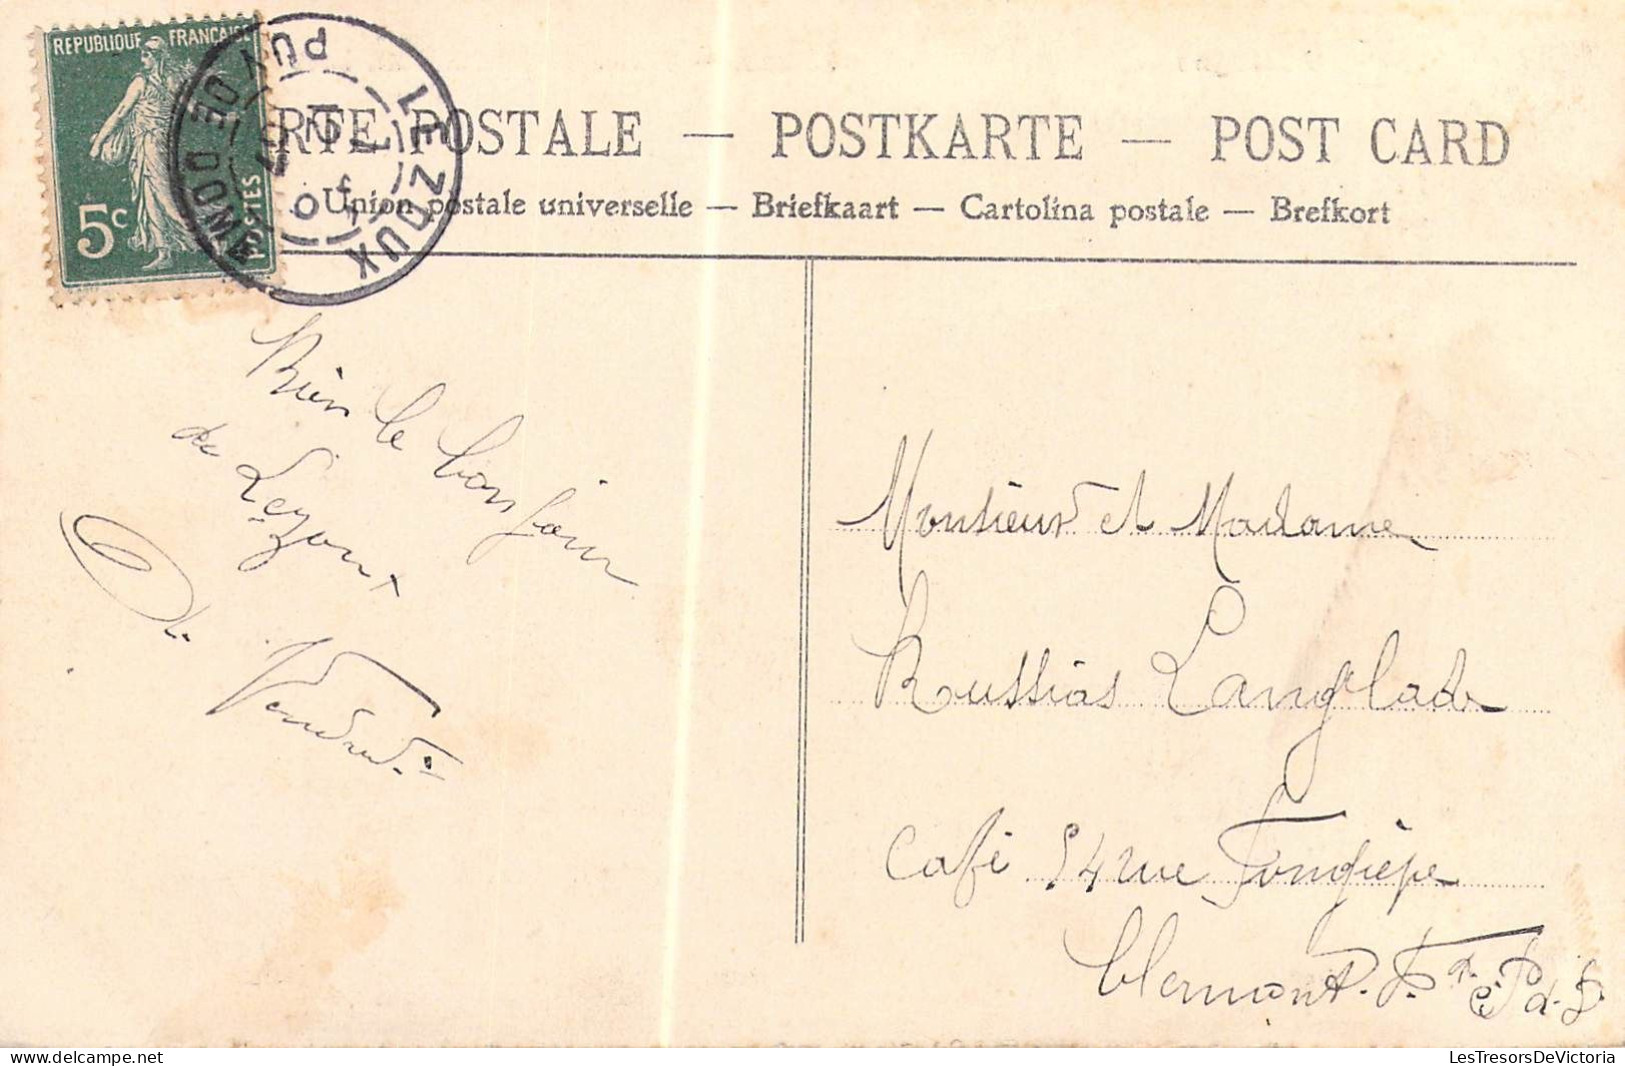 REPUBLIQUE FRANÇAISE
5c
POSTES
LEZOUX
PUY DE DOME
RTE POSTALE — POSTKARTE — POST CARD
Union postale universelle — Briefkaart — Cartolina postale — Brefkort
Bien le bonjour
de Lezoux
Monsieur et Madame
Roussias Langlade
Café 54 rue Fongiève
Clermont. Fd P. d. D.
LesTresorsDeVictoria